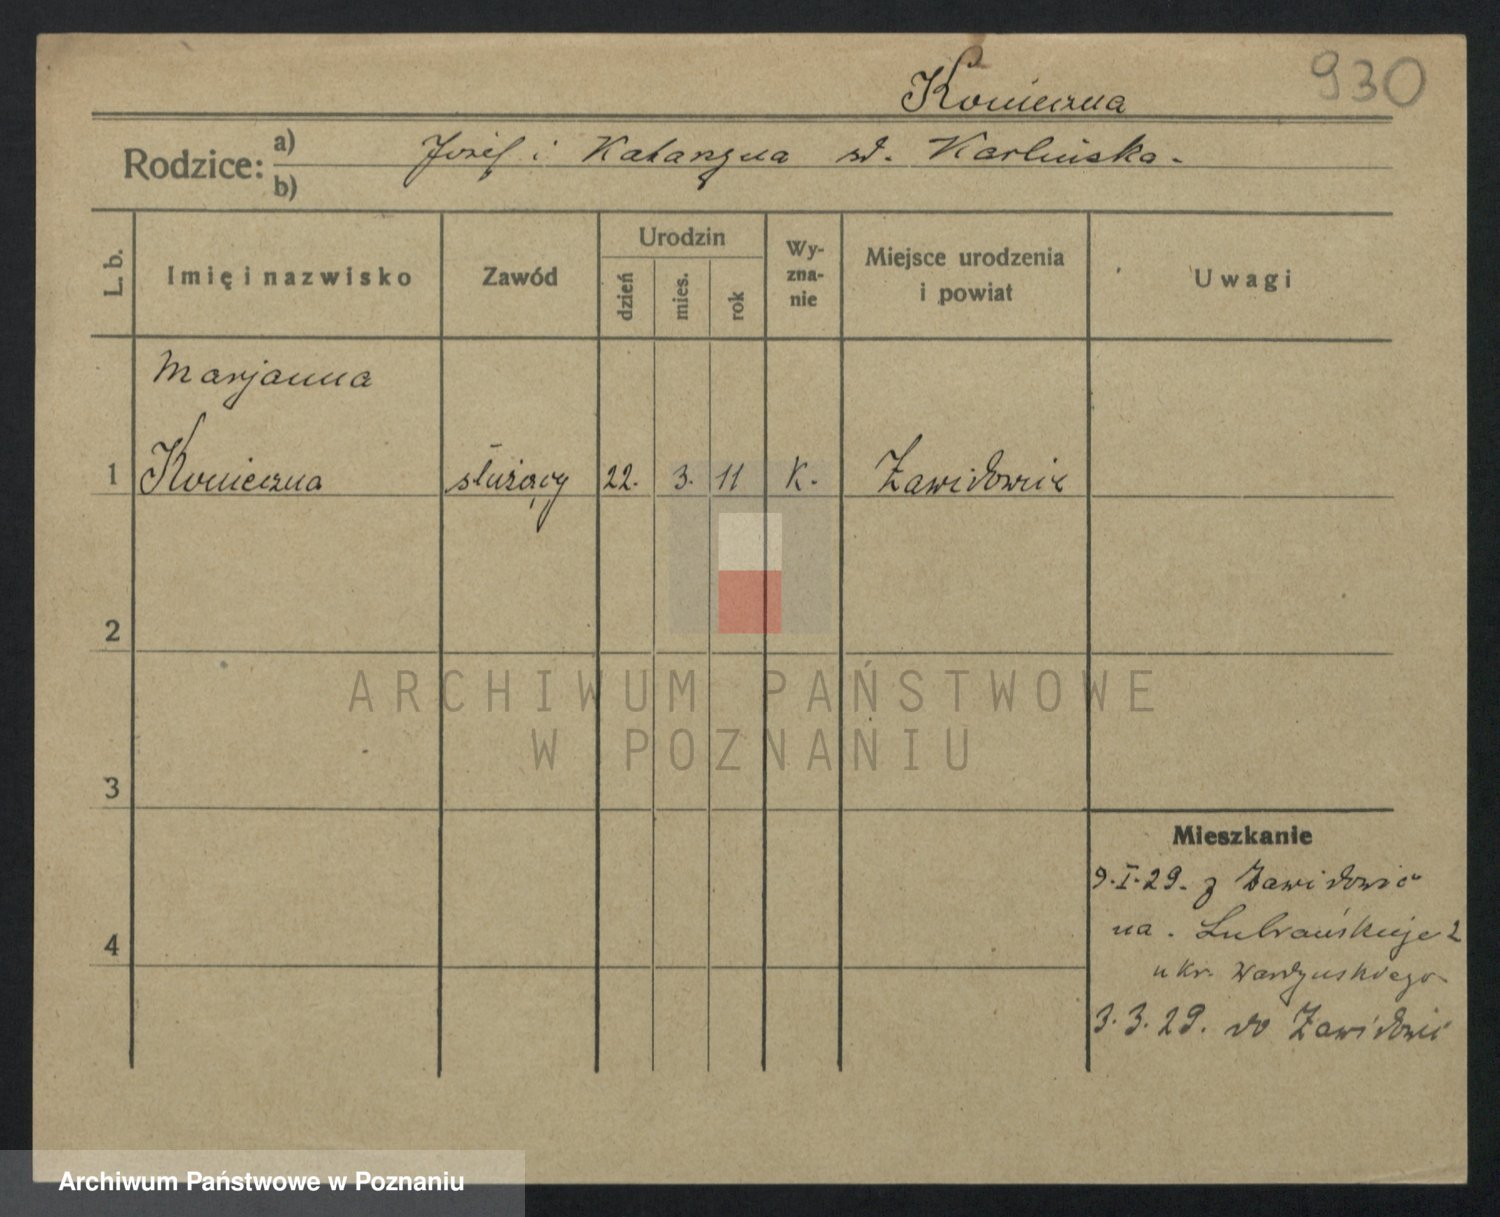 930
Konieczna
Rodzice:
a) Józef i Katarzyna zd. Karlińska.
b)
L. b.
Imię i nazwisko
Zawód
Urodzin
dzień
mies.
rok
Wy-
zna-
nie
Miejsce urodzenia
i powiat
Uwagi
Marjanna
1 Konieczna służący 22. 3. 11 K. Zawidowic
2
ARCHIWUM PAŃSTWOWE
W POZNANIU
3
Mieszkanie
9.I.29. z Zawidowic
na. Lubrańskiego 2
u Kr.
4
3.3.29. do Zawidowic
Archiwum Państwowe w Poznaniu